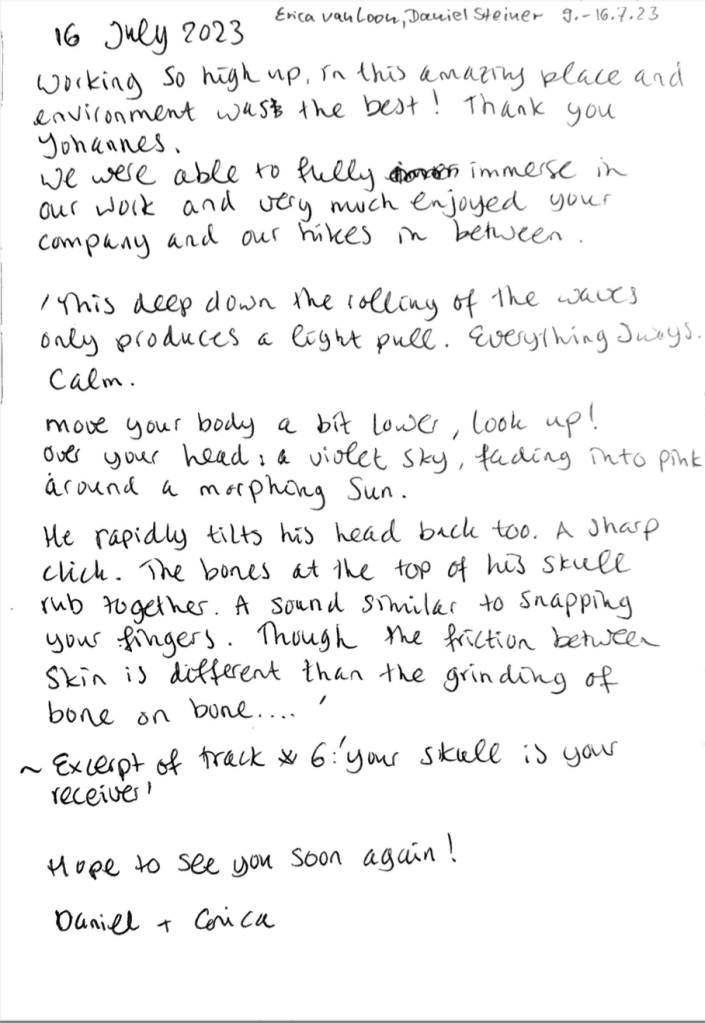 Erica van Loon, Daniel Steiner 9.-16.7.23
16 July 2023
Working so high up, in this amazing place and
environment was the best! Thank you
Yohannes.
We were able to fully immerse in
our work and very much enjoyed your
company and our hikes in between.
'This deep down the rolling of the waves
only produces a light pull. Everything sways.
Calm.
move your body a bit lower, look up!
over your head: a violet sky, fading into pink
around a morphing Sun.
He rapidly tilts his head back too. A sharp
click. The bones at the top of his skull
rub together. A sound similar to snapping
your fingers. Though the friction between
skin is different than the grinding of
bone on bone....'
~ Excerpt of track * 6: 'your skull is your
receiver'
Hope to see you soon again!
Daniel + Erica